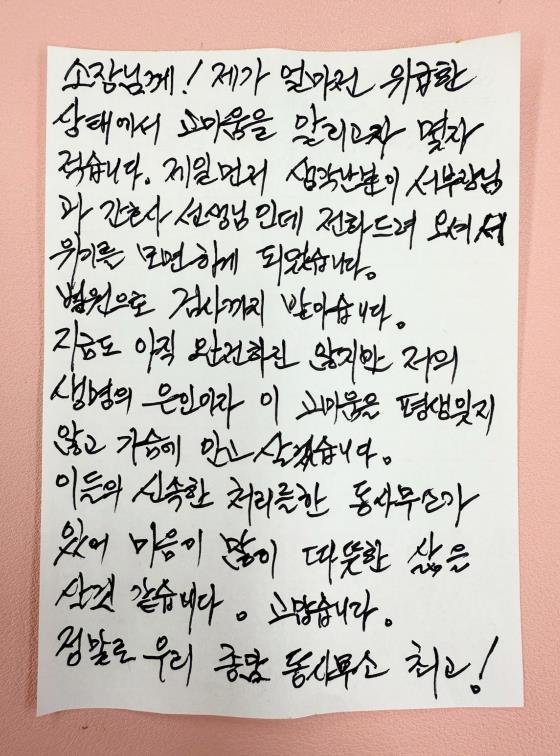 소장님께! 제가 얼마전 위급한
상태에서 고마움을 알리고자 몇자
적습니다. 제일먼저 생각난분이 서부장님
과 간호사 선생님인데 전화드려 오셔서
위기를 모면하게 되었습니다.
병원으로 검사까지 받아습니다.
지금도 아직 완전하진 않지만 저의
생명의 은인이라 이 고마움을 평생잊지
않고 가슴에 안고 살겠습니다.
이들의 신속한 처리를한 동사무소가
있어 마음이 많이 따뜻한 삶을
산것 같습니다. 고맙습니다.
정말로 우리 종암 동사무소 최고!